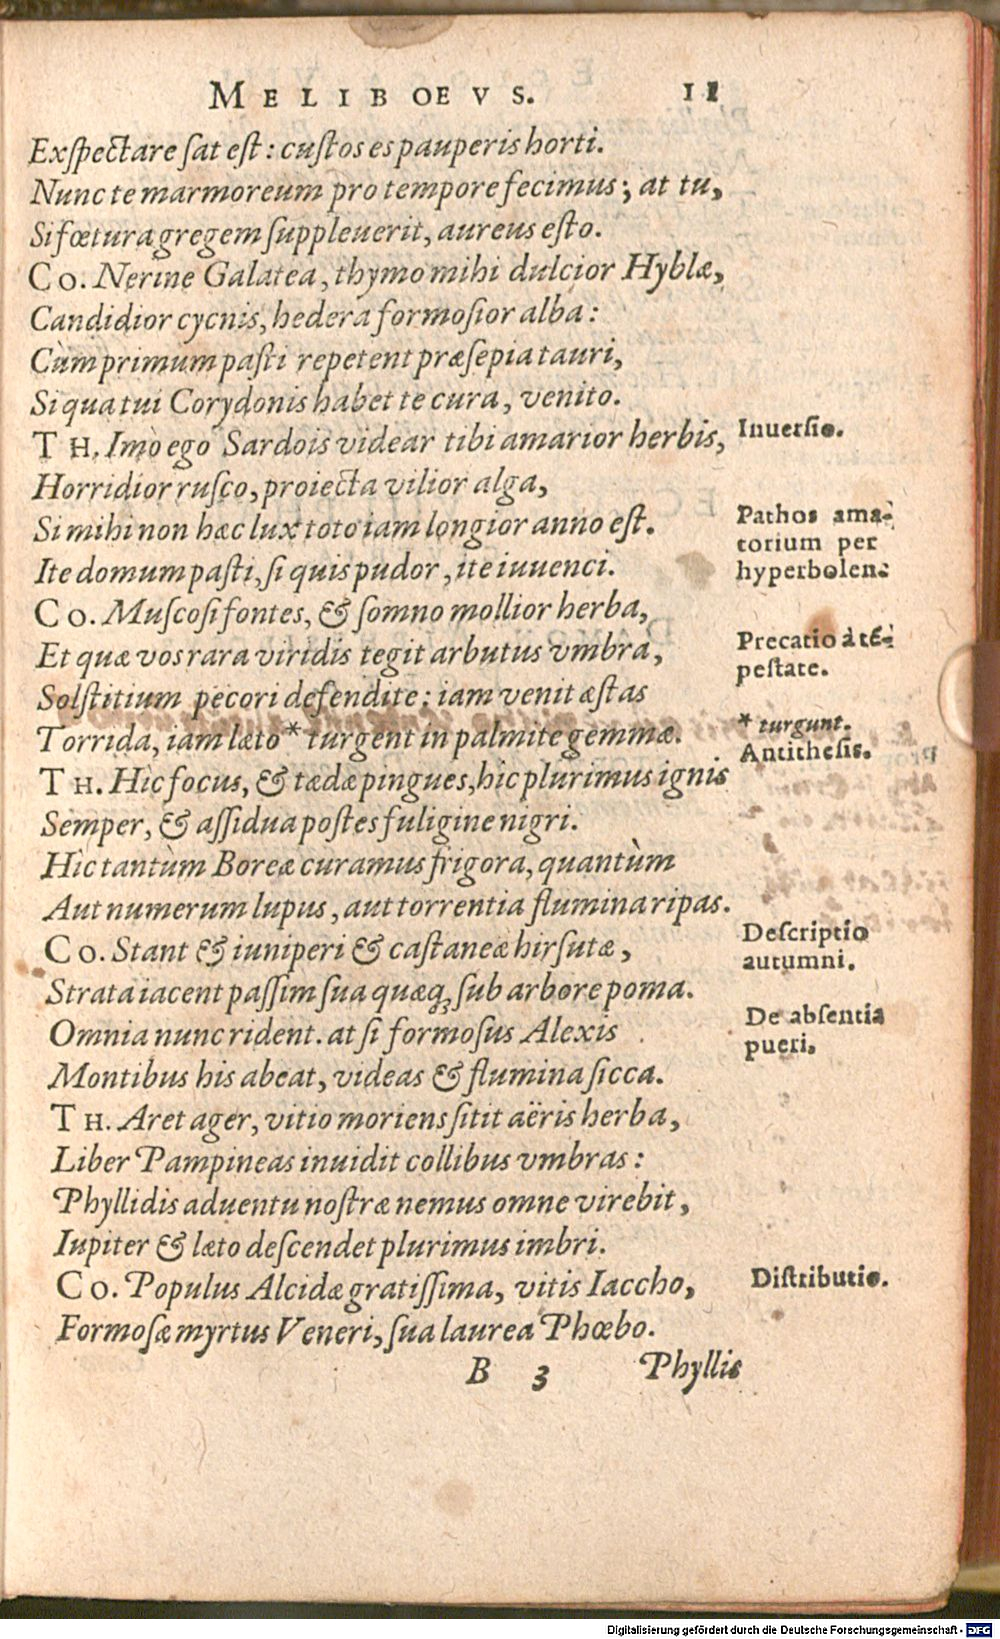 MELIBOEVS. 11
Exspectare sat est: custos es pauperis horti.
Nunc te marmoreum pro tempore fecimus; at tu,
Si fœtura gregem suppleuerit, aureus esto.
Co. Nerine Galatea, thymo mihi dulcior Hyblæ,
Candidior cycnis, hedera formosior alba:
Cùm primum pasti repetent præsepia tauri,
Si qua tui Corydonis habet te cura, venito.
TH. Imò ego Sardois videar tibi amarior herbis,
Inuersio.
Horridior rusco, proiecta vilior alga,
Si mihi non hæc lux toto iam longior anno est.
Pathos ama-
torium per
hyperbolen.
Ite domum pasti, si quis pudor, ite iuuenci.
Co. Muscosi fontes, & somno mollior herba,
Et quæ vos rara viridis tegit arbutus vmbra,
Precatio à tē-
pestate.
Solstitium pecori defendite: iam venit æstas
Torrida, iam læto * turgent in palmite gemmæ.
* turgunt.
Antithesis.
TH. Hìc focus, & tædæ pingues, hìc plurimus ignis
Semper, & assidua postes fuligine nigri.
Hìc tantùm Boreæ curamus frigora, quantùm
Aut numerum lupus, aut torrentia flumina ripas.
Co. Stant & iuniperi & castaneæ hirsutæ,
Descriptio
autumni.
Strata iacent passim sua quæq; sub arbore poma.
Omnia nunc rident. at si formosus Alexis
De absentia
pueri.
Montibus his abeat, videas & flumina sicca.
TH. Aret ager, vitio moriens sitit aëris herba,
Liber Pampineas inuidit collibus vmbras:
Phyllidis aduentu nostræ nemus omne virebit,
Iupiter & læto descendet plurimus imbri.
Co. Populus Alcidæ gratissima, vitis Iaccho,
Distributio.
Formosæ myrtus Veneri, sua laurea Phœbo.
B 3 Phyllis
Digitalisierung gefördert durch die Deutsche Forschungsgemeinschaft - DFG